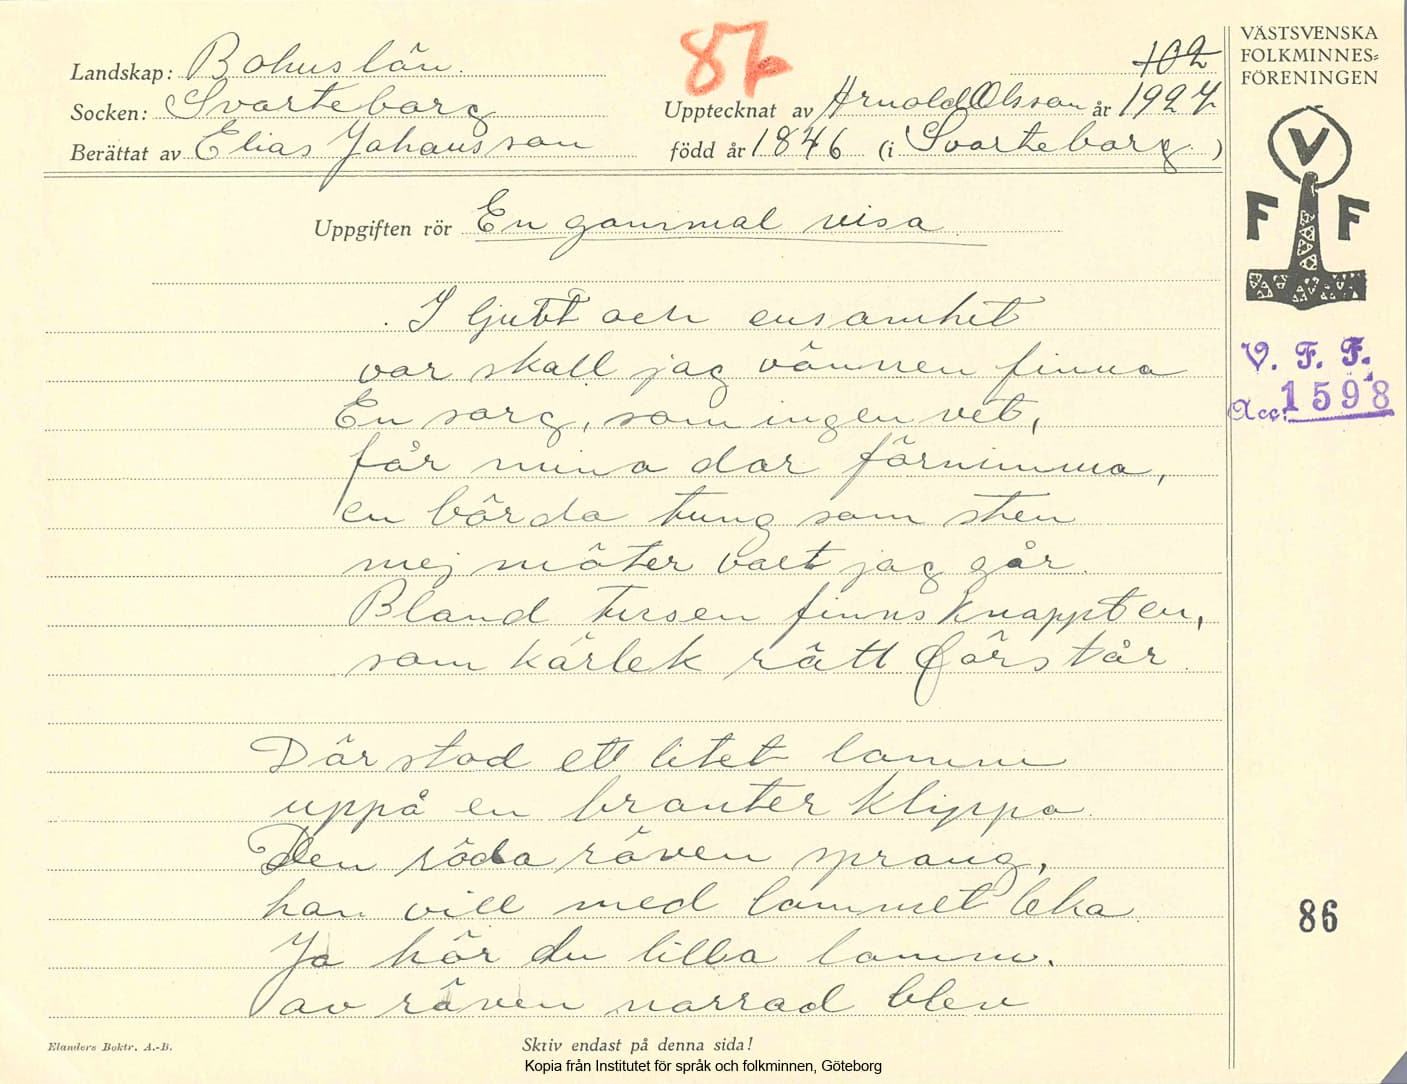 Landskap: Bohuslän.
Socken: Svarteborg
Berättat av Elias Johansson
86
102
Upptecknat av Arnold Olsson år 1927
född år 1846 (i Svarteborg.)
VÄSTSVENSKA
FOLKMINNES-
FÖRENINGEN
V
F F
V. F. F.
Acc. 1598
86
Uppgiften rör En gammal visa.
I ljuvt och ensamhet
var skall jag vännen finna
En sorg, som ingen vet,
får mina dar förnimma,
en börda tung som sten
mej möter vart jag går.
Bland tusen finns knappt en,
som kärlek rätt förstår.
Där stod ett litet lamm
uppå en branter klippa.
Den röda räven sprang,
han vill med lammet leka.
Ja hör du lilla lamm.
av räven narrad blev
Elanders Boktr. A.-B.
Skriv endast på denna sida!
Kopia från Institutet för språk och folkminnen, Göteborg